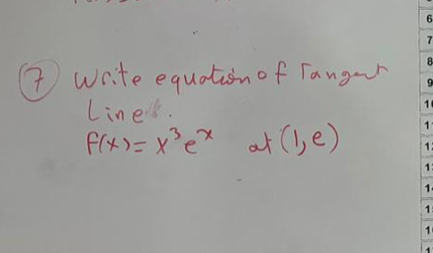 7 Write equation of Tangent
Line.
f(x) = x³eˣ at (1, e)
6
7
8
9
10
11
12
13
14
15
16